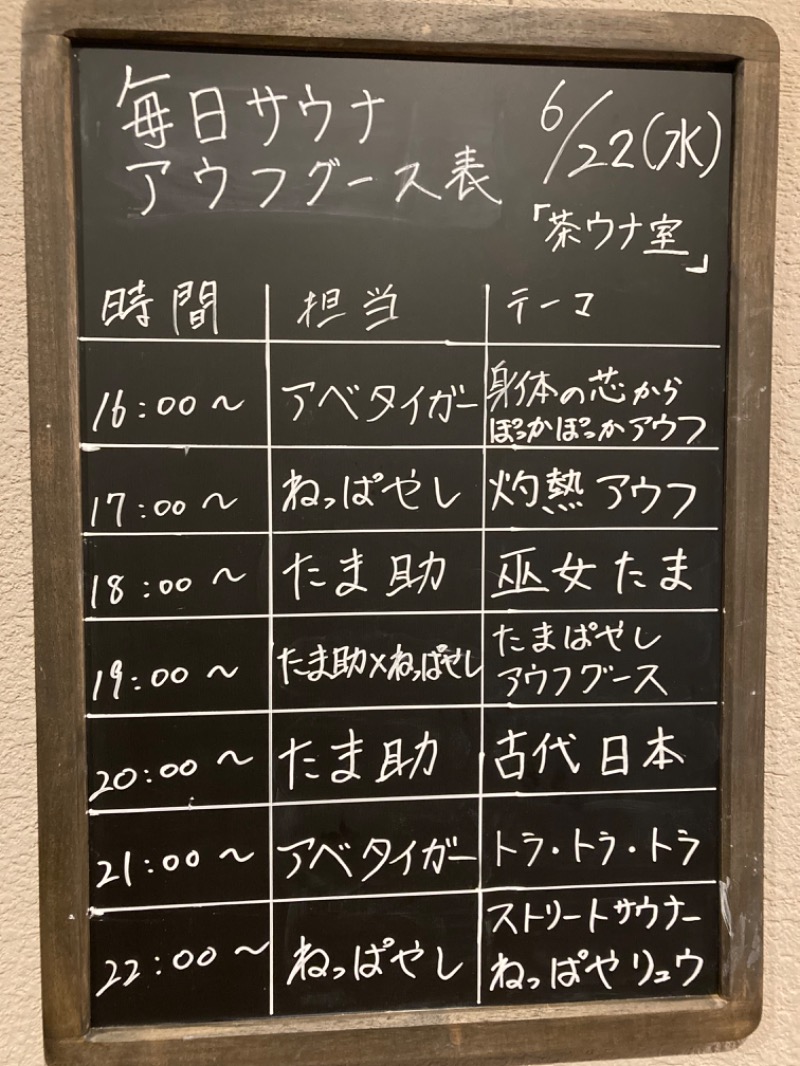 毎日サウナ
アウフグース表
6/22(水)
「茶ウナ室」
時間 担当 テーマ
16:00〜 アベタイガー 身体の芯から
ぽっかぽっかアウフ
17:00〜 ねっぱやし 灼熱アウフ
18:00〜 たま助 巫女たま
19:00〜 たま助×ねっぱやし たまぱやし
アウフグース
20:00〜 たま助 古代日本
21:00〜 アベタイガー トラ・トラ・トラ
22:00〜 ねっぱやし ストリートサウナー
ねっぱやリュウ